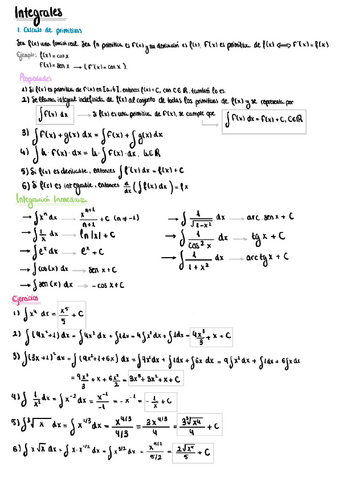 Integrales
1. Cálculo de primitivas
Sea f(x) una función real. Sea la primitiva es F(x) y su derivación es f(x), F(x) es primitiva de f(x) ⟺ F'(x) = f(x)
Ejemplo: f(x) = cos x
F(x) = sen x → (F'(x) = cos x).
Propiedades
1) Si F(x) es primitiva de f(x) en [a,b], entonces F(x) + C, con C∈ℝ, también lo es.
2) Se llama integral indefinida de f(x) al conjunto de todas las primitivas de f(x) y se representa por
∫f(x) dx → Si F(x) es una primitiva de f(x), se cumple que ∫f(x) dx = F(x) + C, C∈ℝ
3) ∫f(x) + g(x) dx = ∫f(x) + ∫g(x) dx
4) ∫k · f(x) · dx = k · ∫f(x) · dx, k∈ℝ
5) Si f(x) es derivable, entonces ∫f'(x) dx = f(x) + C
6) Si f(x) es integrable, entonces d/dx (∫f(x) dx) = f(x)
Integración Inmediata
→ ∫xⁿ dx → xⁿ⁺¹/n+1 + C (n ≠ -1) → ∫ 1/√1-x² dx → arc. sen x + C
→ ∫ 1/x dx → ln|x| + C → ∫ 1/cos² x dx → tg x + C
→ ∫eˣ dx → eˣ + C → ∫ 1/1+x² dx → arc tg x + C
→ ∫cos(x) dx → sen x + C
→ ∫sen (x) dx → - cos x + C
Ejercicios
1) ∫x⁴ dx = x⁵/5 + C
2) ∫(4x² + 1) dx = ∫4x² dx + ∫1 dx = 4∫x² dx + ∫1 dx = 4x³/3 + x + C
3) ∫(3x+1)² dx = ∫(9x² + 1 + 6x) dx = ∫9x² dx + ∫1 dx + ∫6x dx = 9∫x² dx + ∫1 dx + 6∫x dx
= 9x³/3 + x + 6x²/2 = 3x³ + 3x² + x + C
4) ∫ 1/x² dx = ∫x⁻² dx = x⁻¹/-1 = -x⁻¹ = -1/x + C
5) ∫∛x dx = ∫x^1/3 dx = x^4/3/4/3 = 3x^4/3/4 = 3∛x⁴/4 + C
6) ∫x √x dx = ∫x · x^1/2 dx = ∫x^3/2 dx = x^5/2/5/2 = 2√x⁵/5 + C